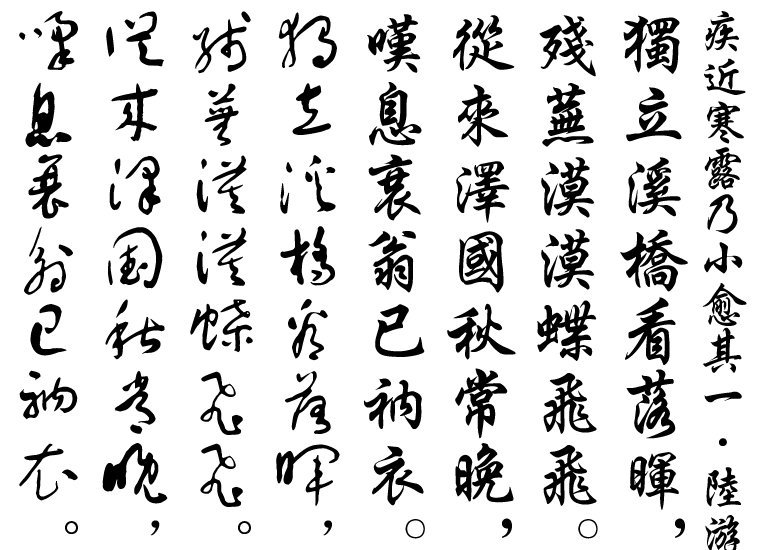 疾近寒露乃小愈其一·陸游
獨立溪橋看落暉，
殘蕪漠漠蝶飛飛。
從來澤國秋常晚，
嘆息衰翁已衲衣。
獨立溪橋看落暉，
殘蕪漠漠蝶飛飛。
從來澤國秋常晚，
嘆息衰翁已衲衣。